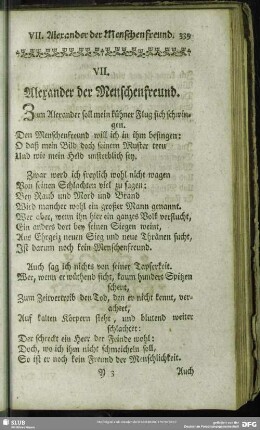 VII. Alexander der Menschenfreund. 339
VII.
Alexander der Menschenfreund.
Zum Alexander soll mein kühner Flug sich schwin-
gen.
Den Menschenfreund will ich in ihm besingen:
O daß mein Bild doch seinem Muster treu
Und wie mein Held unsterblich sey.
Zwar werd ich freylich wohl nicht wagen
Von seinen Schlachten viel zu sagen:
Bey Raub und Mord und Brand
Wird mancher wohl ein großer Mann genannt.
Wer aber, wenn ihn hier ein ganzes Volk verflucht,
Ein anders dort bey seinen Siegen weint,
Aus Ehrgeiz neuen Sieg und neue Thränen sucht,
Ist darum noch kein Menschenfreund.
Auch sag ich nichts von seiner Tapferkeit.
Wer, wenn er wachend sicht, kaum hundert Spitzen
scheut,
Zum Zeitvertreib den Tod, den er nicht kennt, ver-
achtet,
Auf kalten Körpern steht und blutend weiter
schlachtet:
Der schreckt ein Heer der Feinde wohl:
Doch, wo ich ihm nicht schmeicheln soll,
So ist er noch kein Freund der Menschlichkeit.
Y 3 Auch
SLUB
DFG